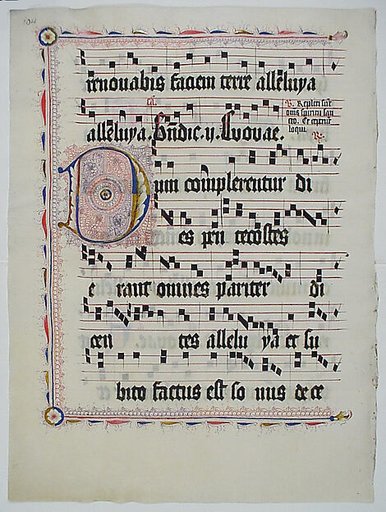 renovabis faciem terre alleluya
alleluya. Bndic. y. Evovae.
Dum complerentur di
es pen tecostes
e rant omnes pariter di
cen tes allelu ya et su
bito factus est so nus de ce